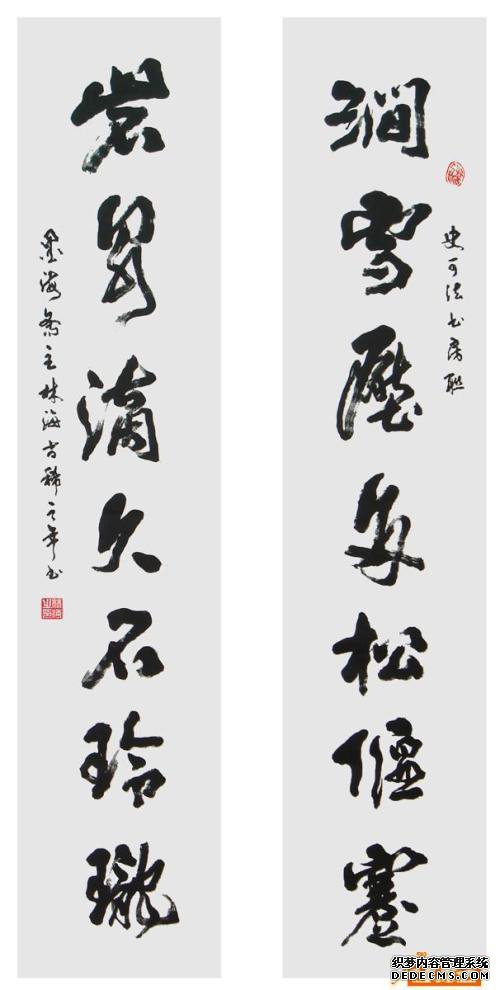 史可法书房联
澗雪壓多松偃蹇
岩泉滴久石玲瓏
墨海斋主林海古稀之年书
织梦内容管理系统
DEDECMS.COM